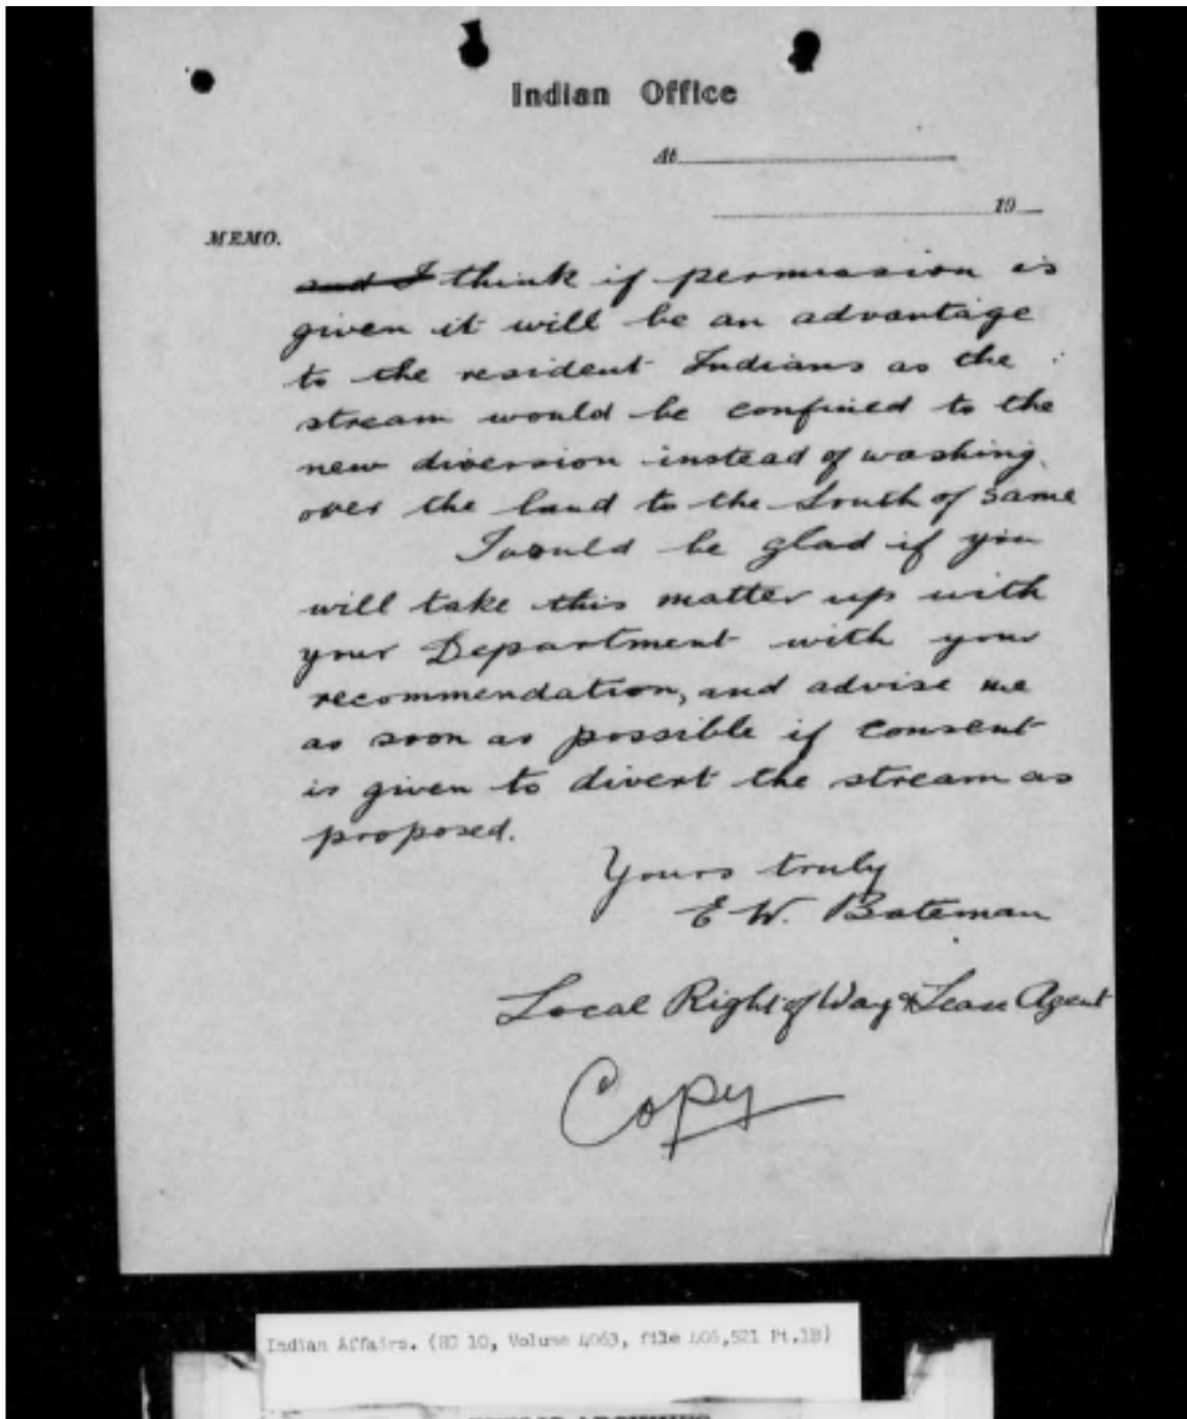 Indian Office
At
19
MEMO.
and I think if permission is
given it will be an advantage
to the resident Indians as the
stream would be confined to the
new diversion instead of washing
over the land to the South of same
I would be glad if you
will take this matter up with
your Department with your
recommendation, and advise me
as soon as possible if consent
is given to divert the stream as
proposed.
Yours truly
E W. Bateman
Local Right of Way & Lease Agent
Copy
Indian Affairs. (RG 10, Volume 4063, file 405,521 Pt.1B)